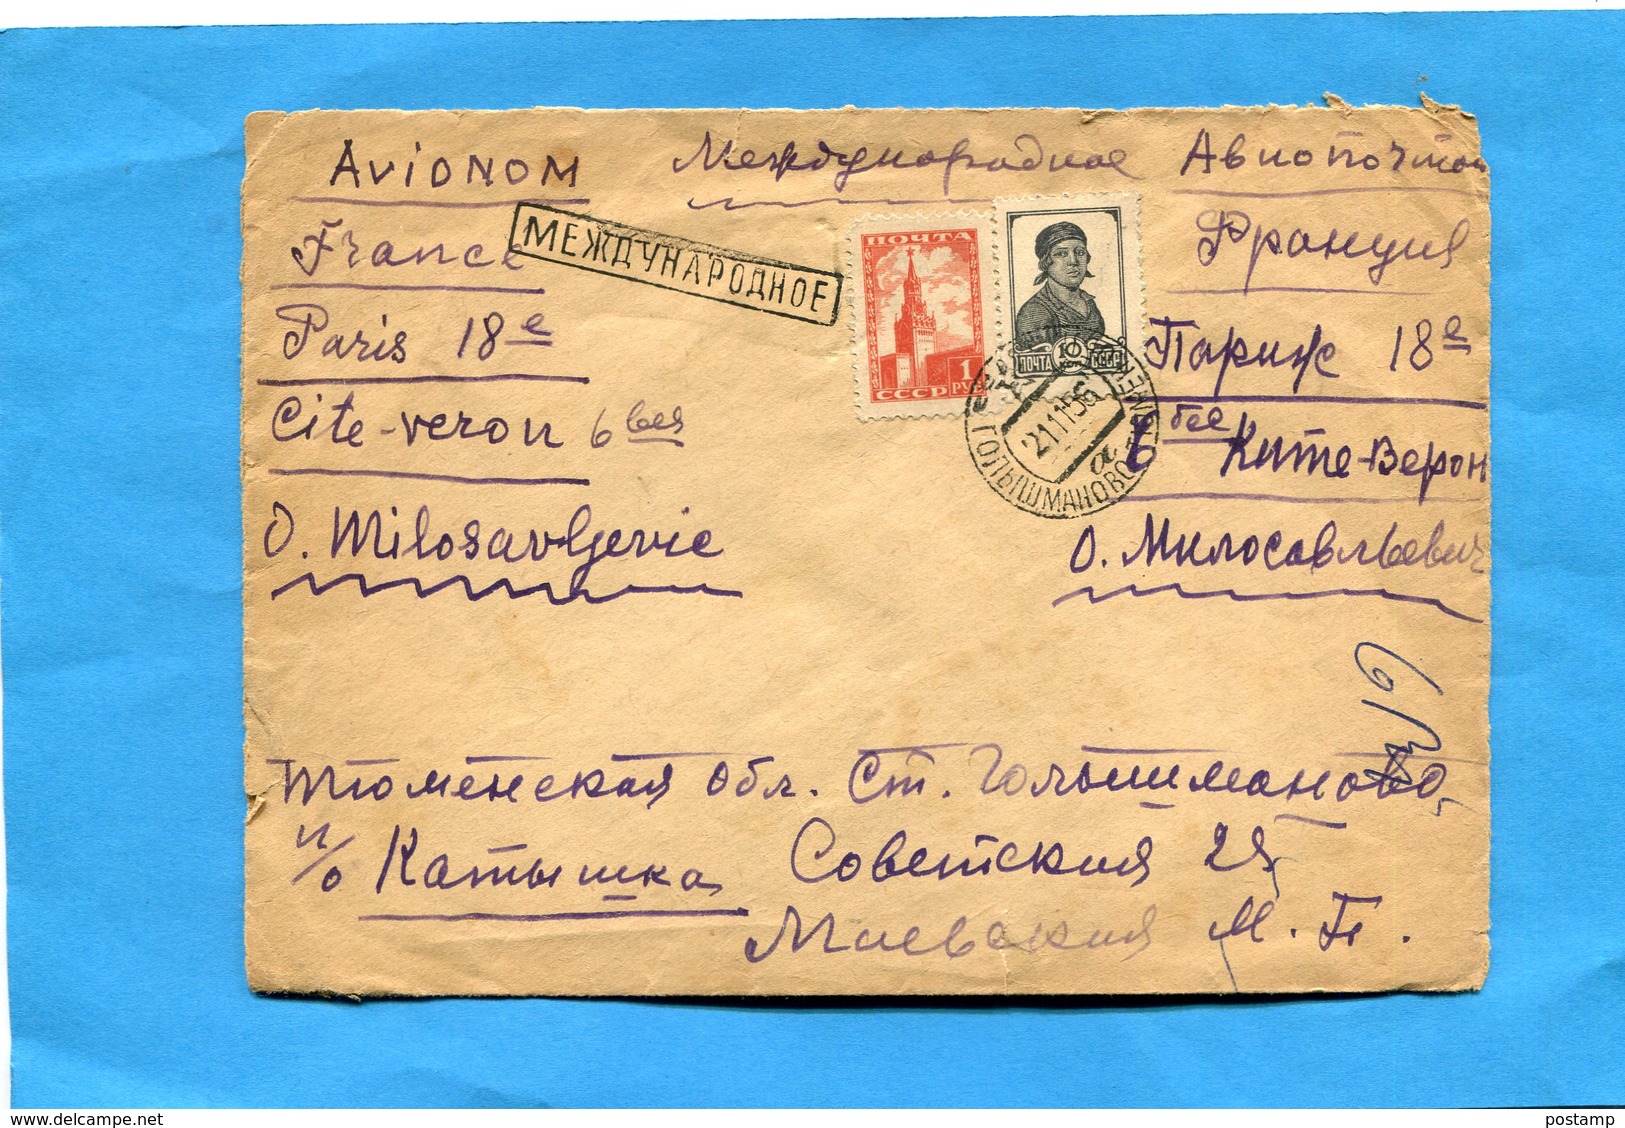 Avionom Международное Авиопочтой
МЕЖДУНАРОДНОЕ
France
Paris 18e
Cite-veron 6 bes
O. Milosavljevic
Франция
Париж 18e
6 бее Ките-Верон
О. Милосавльевич
ПОЧТА
1 РУБ
СССР
ПОЧТА 10 СССР
21.11.56
а
ГОЛЫШМАНОВО ТЮМЕН
Тюменская обл. Ст. Голышманово,
п/о Катышка Советская 25
Маевская М. П.
postamp